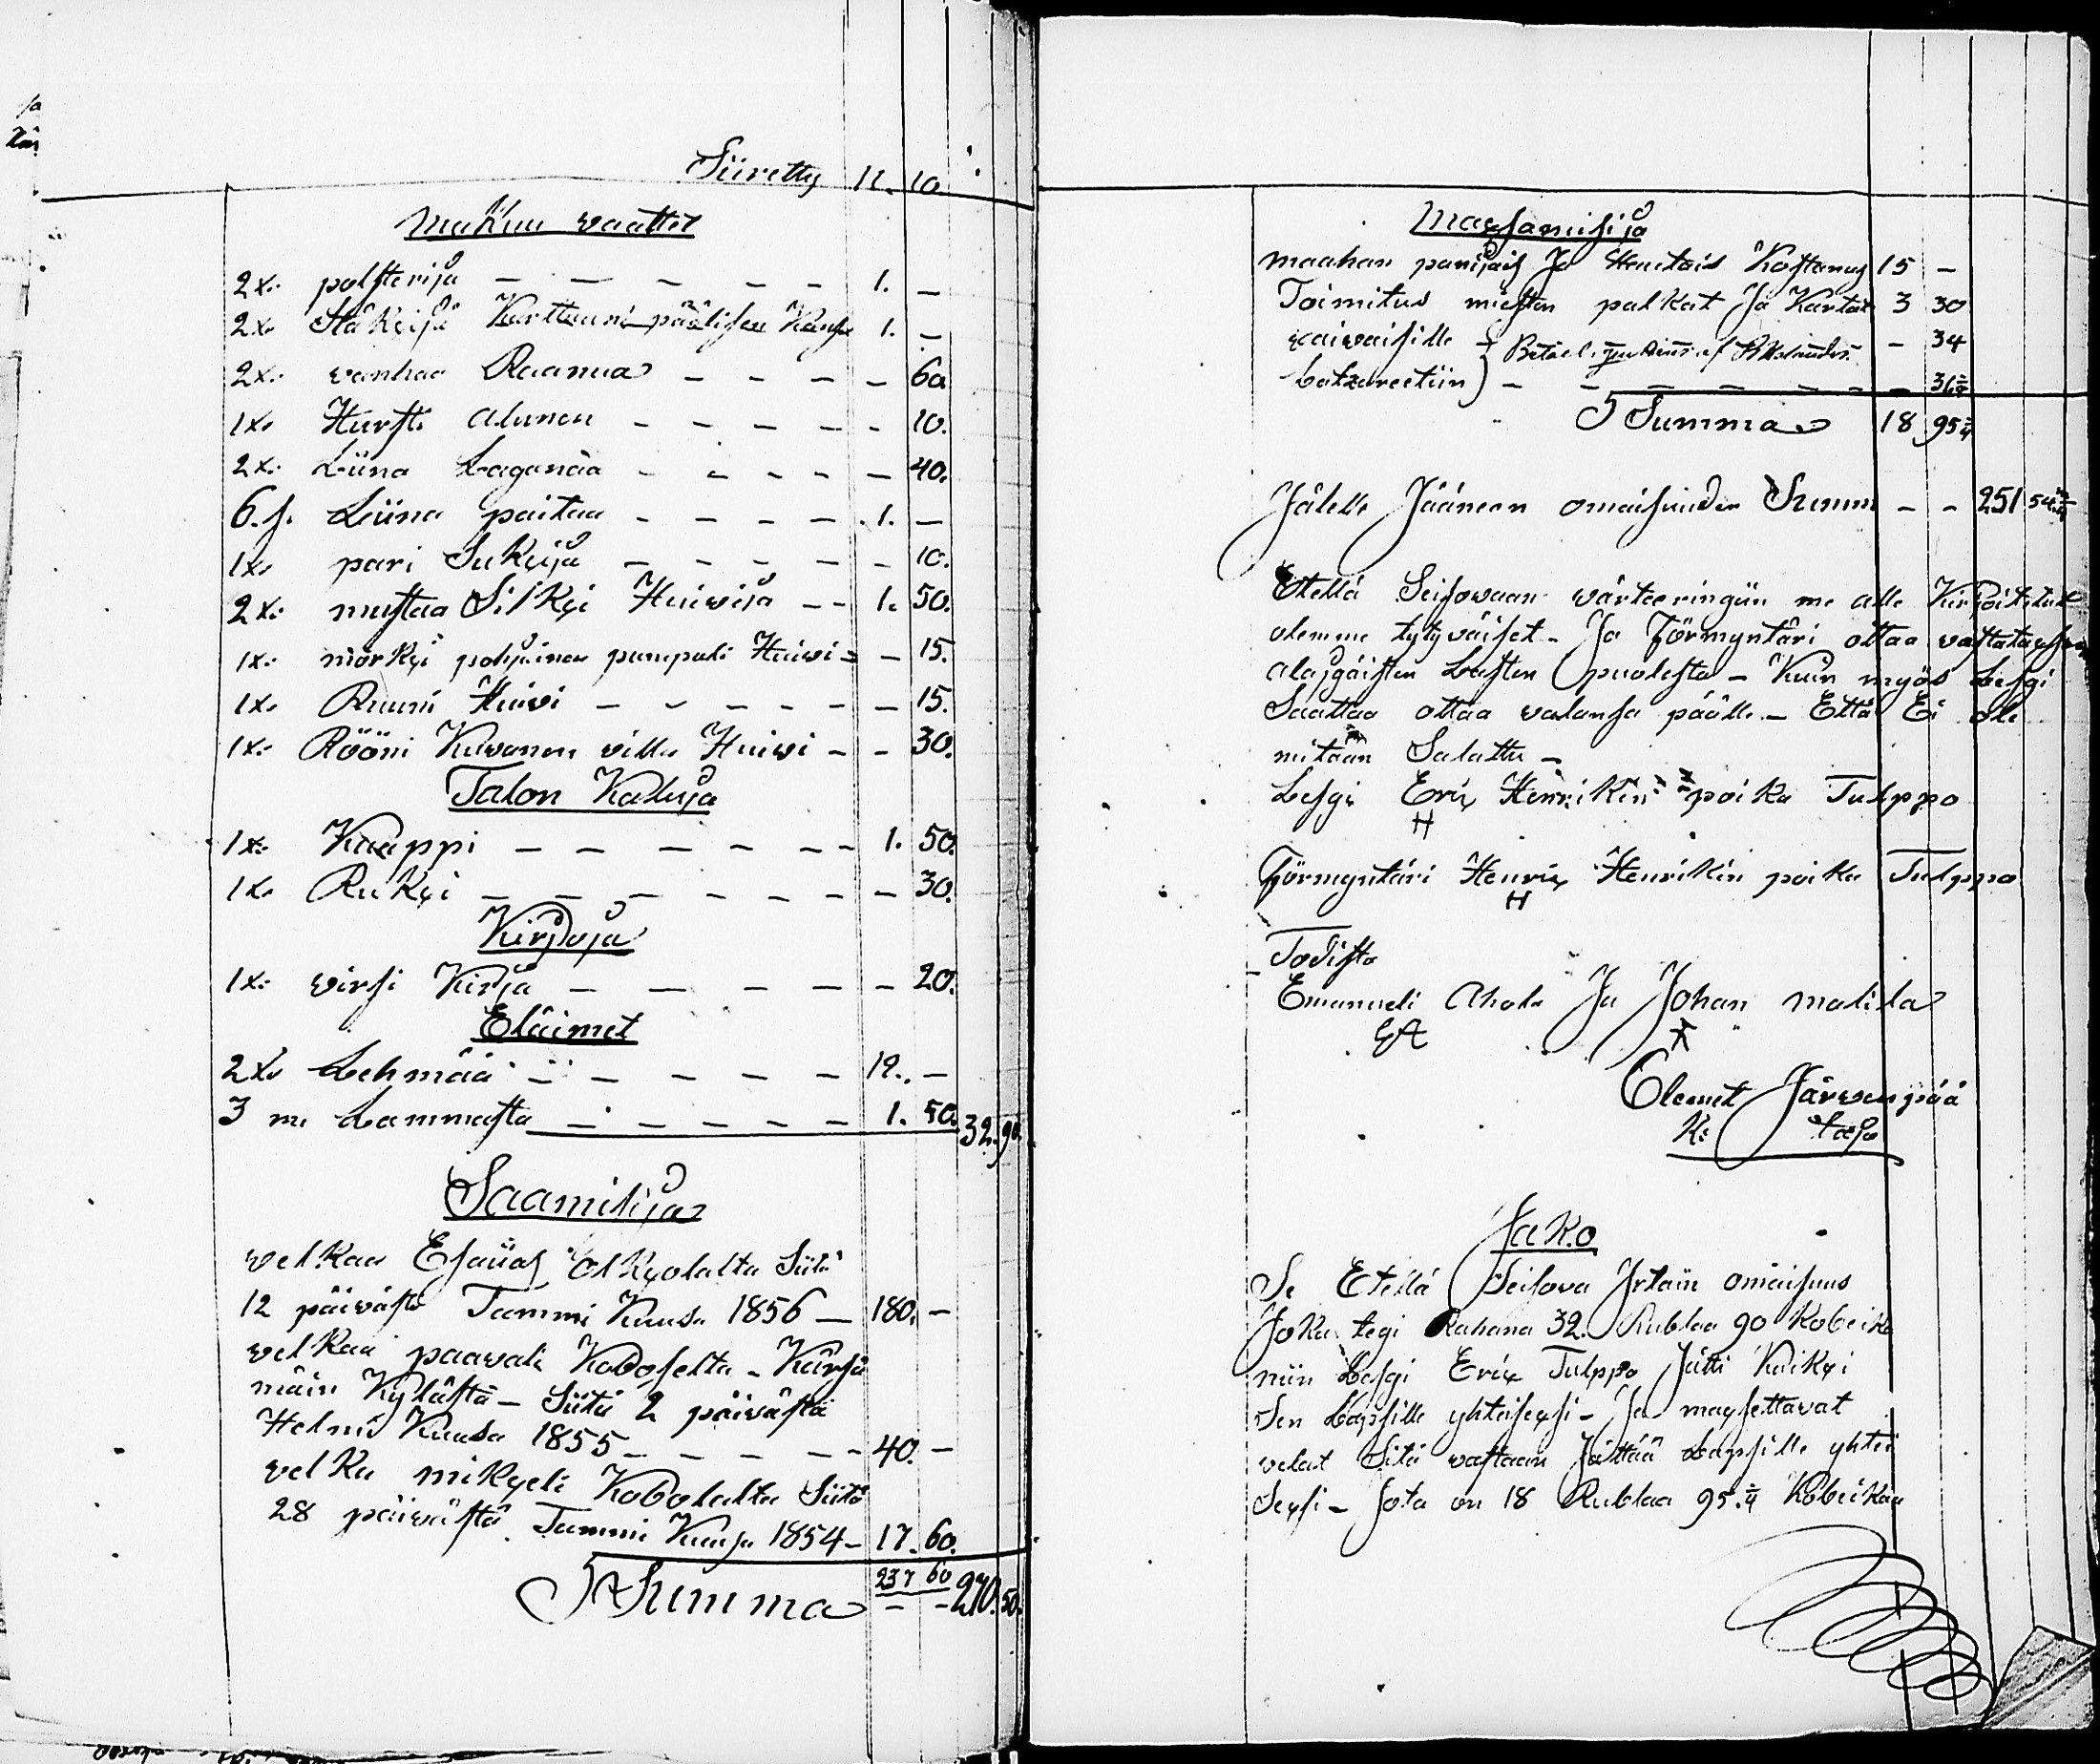 Siiretty 11. 10
makuu vaattet
2 x: polsterija — — — — — — 1. —
2 x: Häkeijä Karttuuni päälisen Kansa 1. —
2 x: vanhaa Raanua — — — — 60
1 x: Hursti alunen — — — — — 10.
2 x: Liina Laganäa — — — — — 40.
6. s. Liina paitaa — — — — 1. —
1 x: pari Sukkija — — — — — 10.
2 x: mustaa Silkki Huiwija — — 1. 50.
1 x: mörkki pohjainen pumpuli Huiwi — — 15.
1 x: Ruuni Huivi — — — — — — 15.
1 x: Rööni Kuvanen villa Huiwi — — 30.
Talon Kaluja
1 x: Kaappi — — — — — — 1. 50.
1 x: Rukki — — — — — — — 30.
Kirjoja
1 x: virsi Kirja — — — — — 20.
Eläimet
2 x: Lehmää — — — — — 19. —
3 m: Lammasta — — — — — 1. 50. 32. 90.
Saamisija
velkaa Esaias Olkkolalta Siitä
12 päivästä Tammi Kuusa 1856 — 180. —
velkaa paavali Koboselta - Kärsä
mäin Kylästä - Siitä 2 päivästä
Helmi Kuusa 1855 — — — — — 40. —
velka mikkeli Kobolalta Siitä
28 päivästä Tammi Kuusa 1854 — 17. 60.
237 60
Summa — — 270. 50.
maxsamisija
maahan panijais Ja Kostanus 15 —
Toimitus miesten palkat Ja Kartat 3 30
vaivaisille — 34
Latzareetiin — — — — — — —
Summa 18 95 ¼
Jälelle Jääneen omaisuuden Summ — — 251
Etellä Seisovaan värteeringiin me alle Kirjoitetut
olemme tytyväiset - Ja Förmyntäri ottaa vastataxsen
alajgäisten Lasten puolesta - Kuin myös Lesgi
Saattaa ottaa valansa päälle - Että Ei ole
mitään Salattu -
Lesgi Erix Henrikin poika Tulppo
H
Förmyntäri Henrix Henrikin poika Tulppo
H
Todista
Emanueli Ahola Ja Johan matila
EA
Clemet Järvenpää
Ki
Jako
Se Etellä Seisova Irtain omaisuus
Joka tegi Rahana 32. Rublaa 90 Kobeika
niin Lesgi Erix Tulppo Jätti Kaikki
Sen Lapsille yhteisexsi - Ja maxsettavat
velat Sitä vastaan Jättää Lapsille yhtei
Sexsi - Jota on 18 Rublaa 95. ¼ Kobeikaa